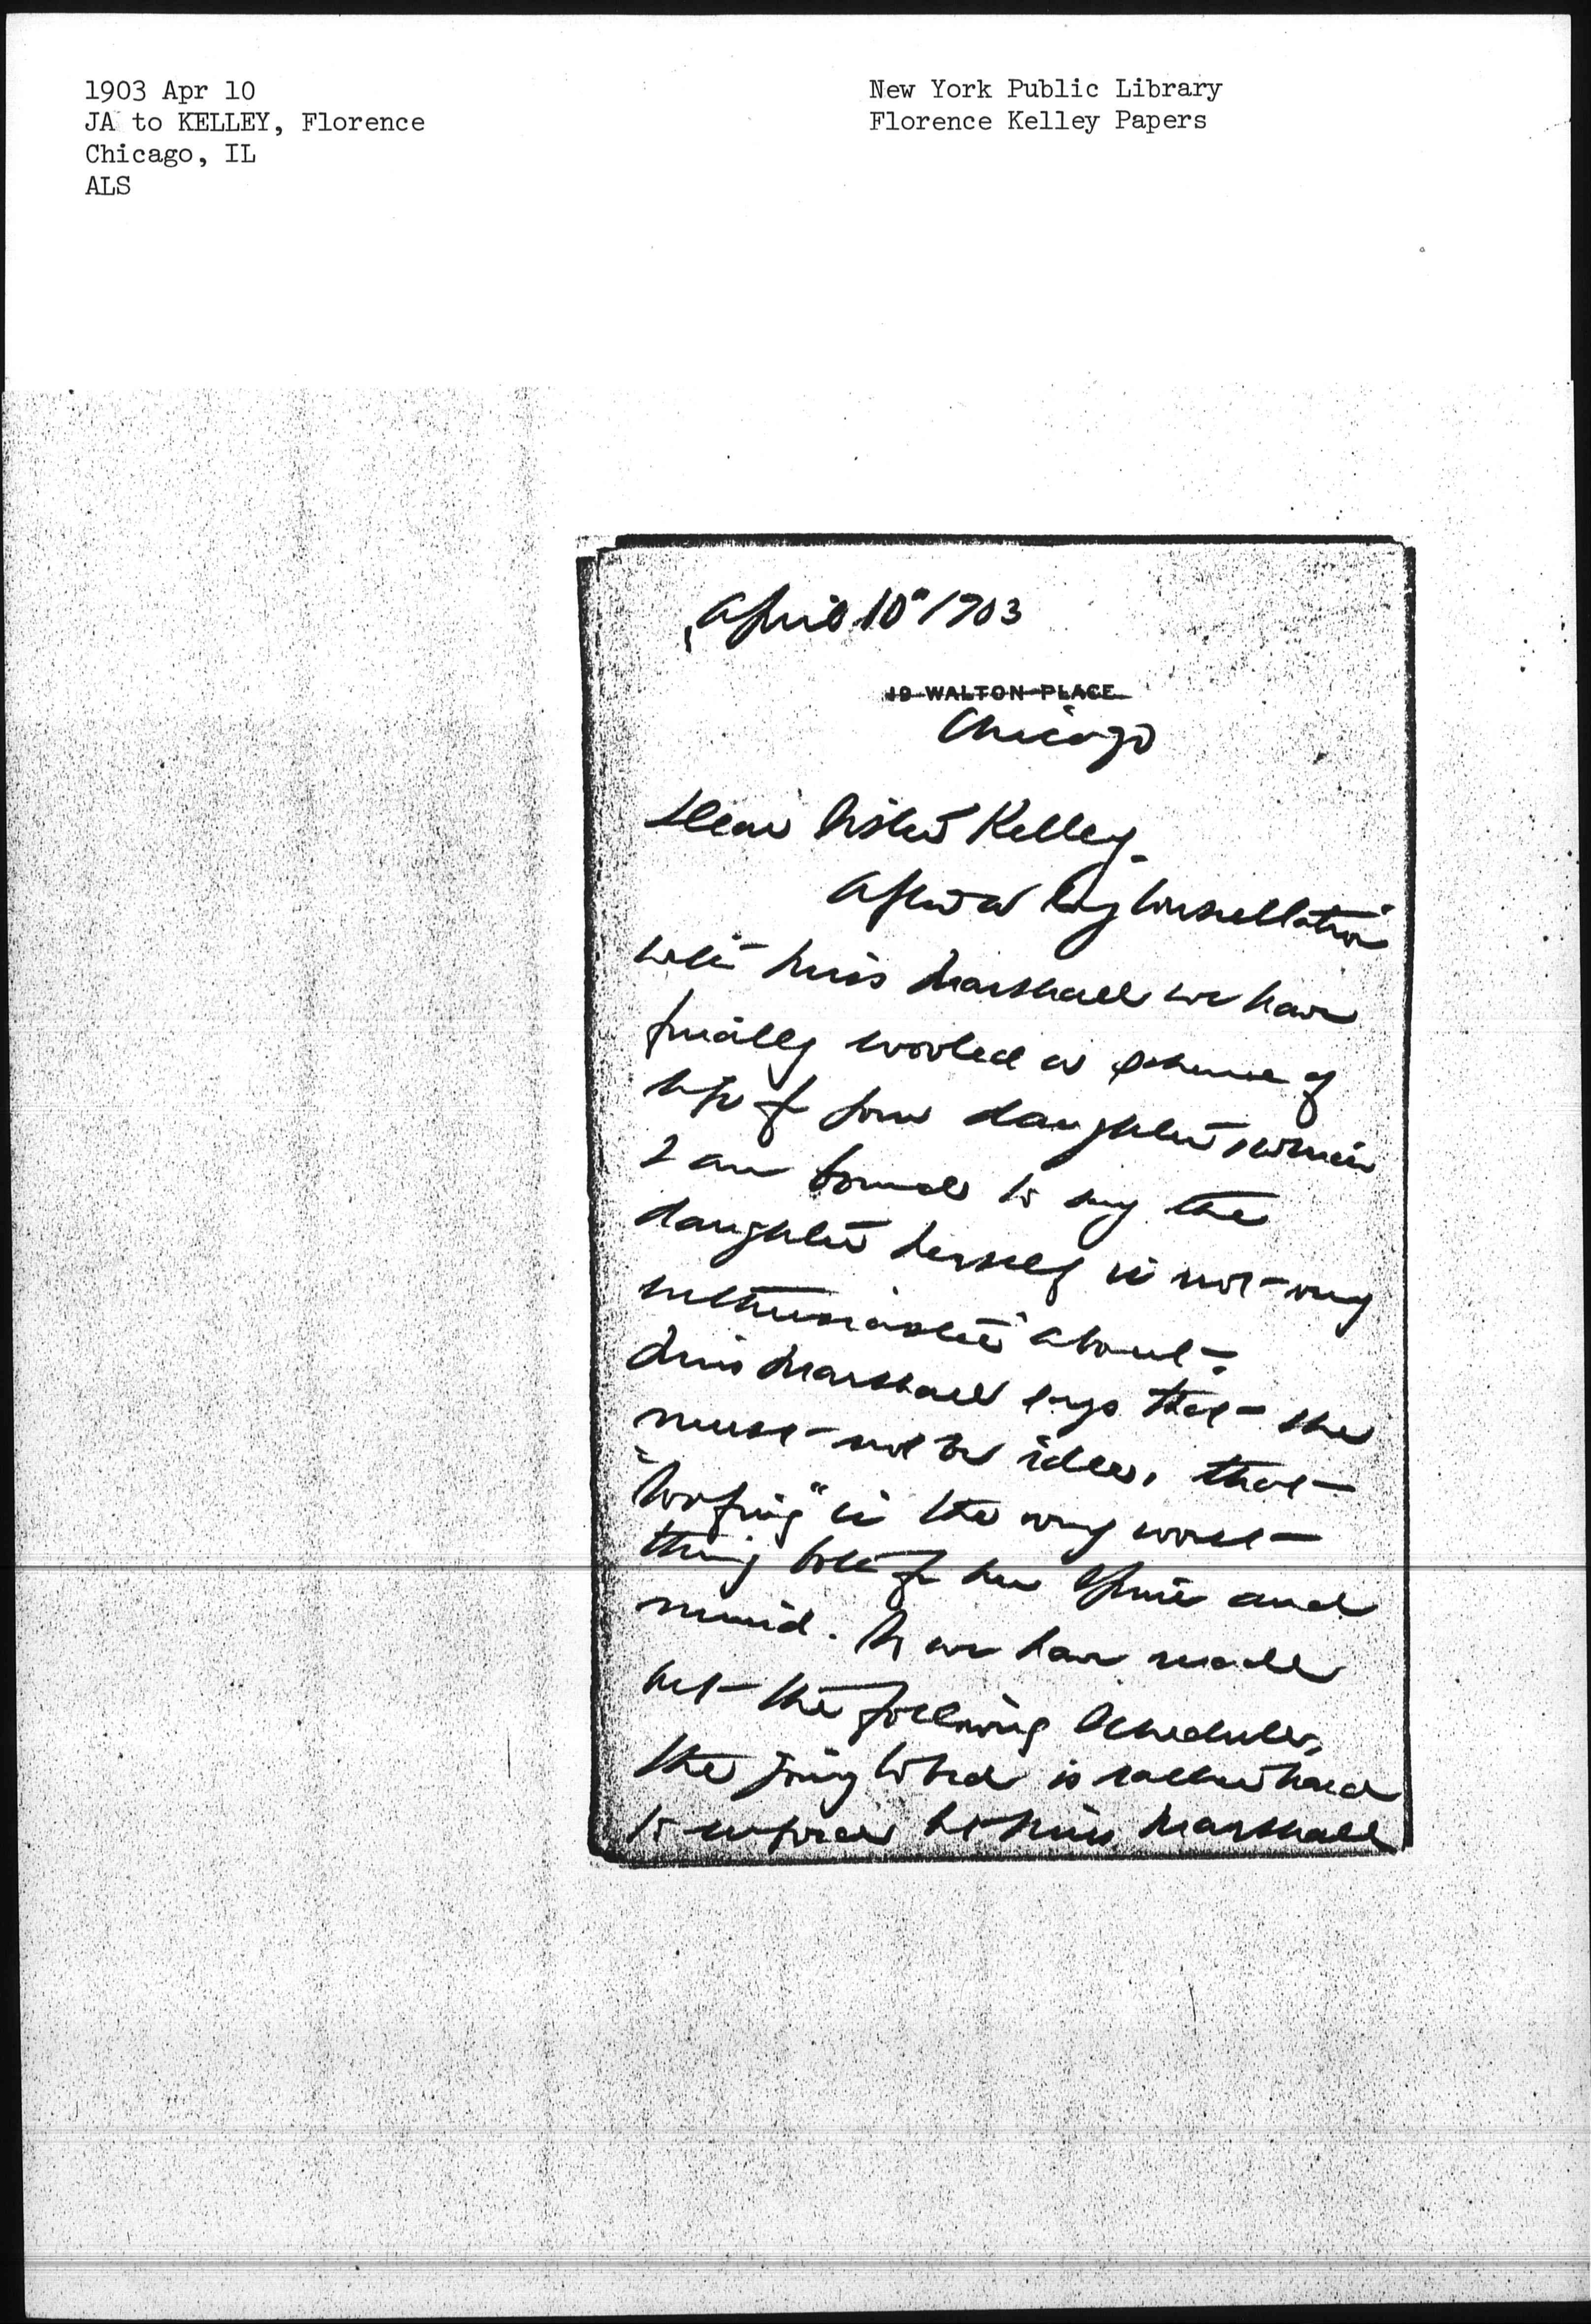 1903 Apr 10
JA to KELLEY, Florence
Chicago, IL
ALS
New York Public Library
Florence Kelley Papers
April 10" 1903
19 WALTON PLACE
Chicago
Dear Sister Kelley.
After a long consultation
with Miss Marshall we have
finally worked a scheme of
life for your daughter, which
I am bound to say the
daughter herself is not very
enthusiastic about.
Miss Marshall says that she
must not be idle, that
"loafing" is the very worst
thing both for her spine and
mind. So we have made
out the following schedule,
the going to bed is rather hard
to enforce but Miss Marshall